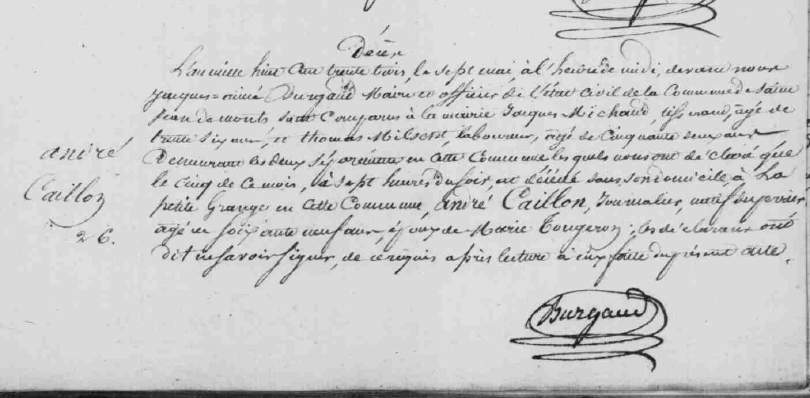 Décès
L'an mille huit cent trente trois, le sept mai, à l'heure de midi, devant nous
Jacques=aimé Burgaud Maire et officier de l'état Civil de la Commune de Saint
Jean de monts sont Comparus à la mairie Jacques Michaud, tisserand, agé de
trente six ans, et thomas Milsent, laboureur, agé de Cinquante deux ans
Demeurant les deux séparément en cette Commune les quels nous ont déclaré que
andré
le cinq de ce mois, à sept heures du soir, est décédé dans son domicile, à La
Caillon
petite Grange en cette Commune, andré Caillon, Journalier, natif du perrier,
26.
agé de soixante neuf ans, époux de Marie Tougeron; les déclarans ont
dit ne savoir signer, de ce requis après lecture à eux faite du présent acte.
Burgaud